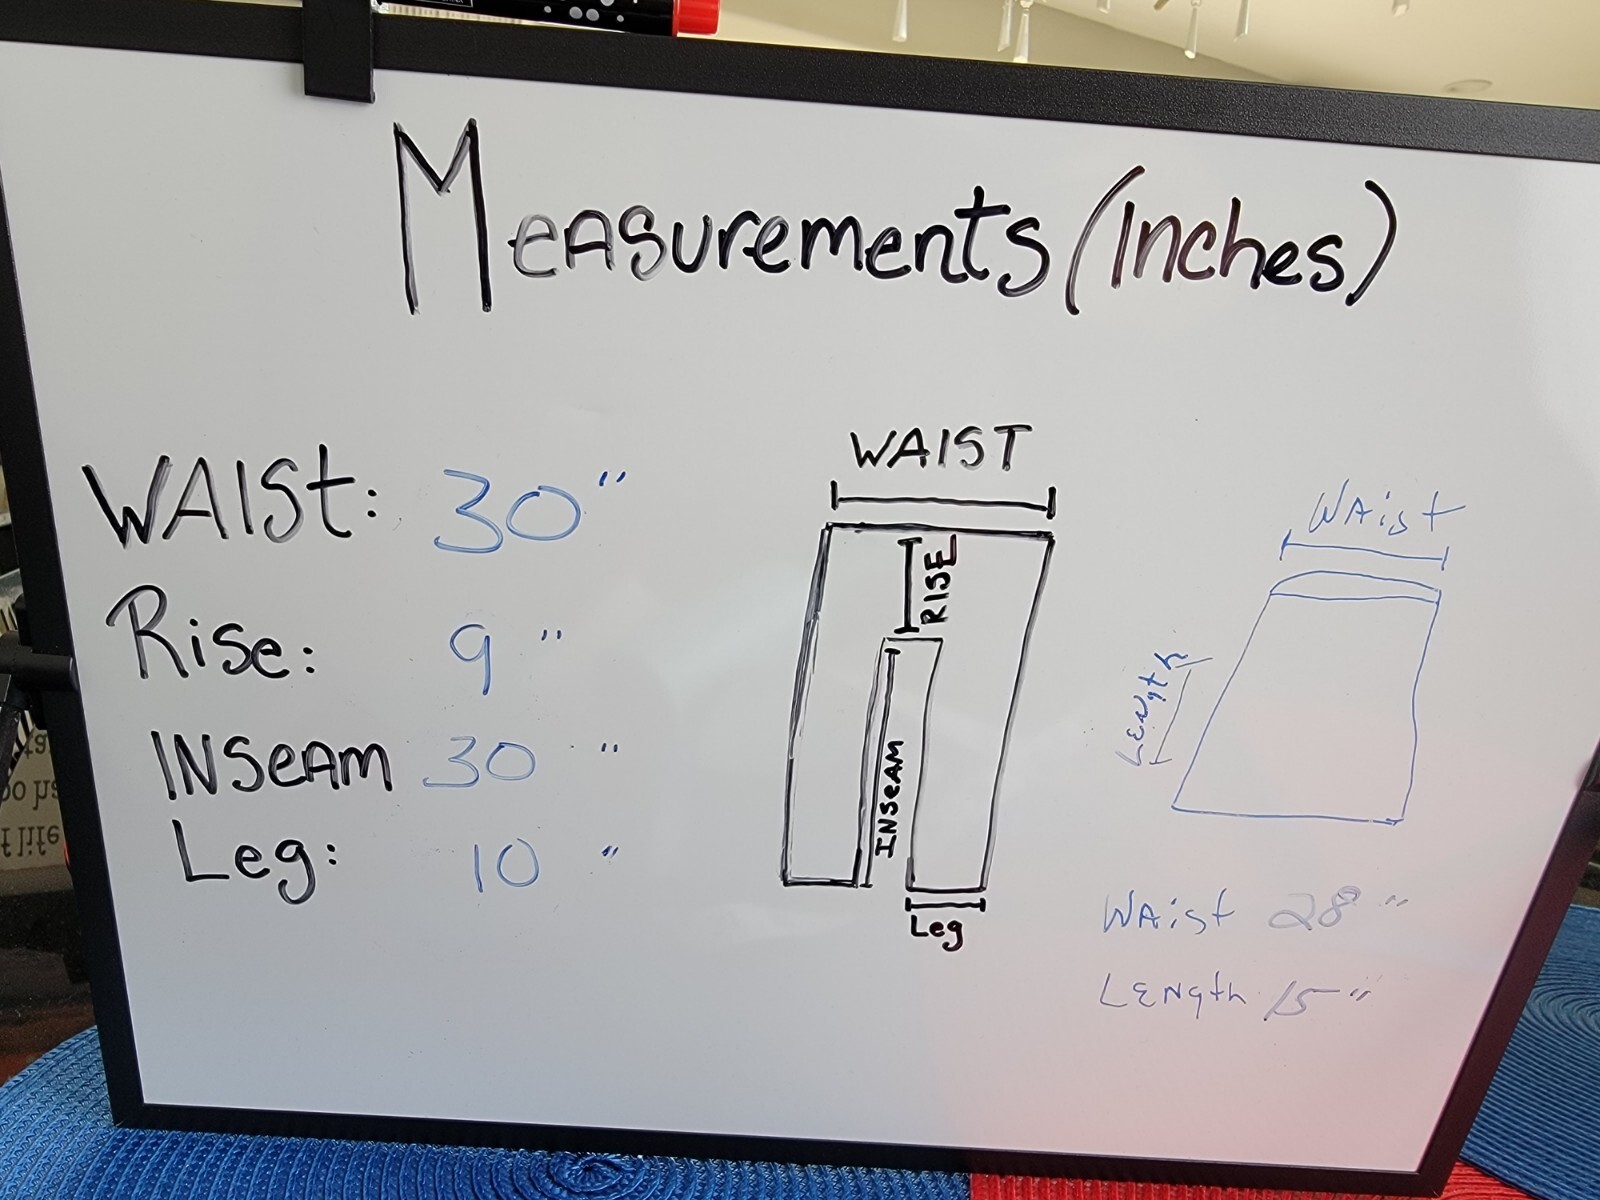 Measurements (Inches)
Waist: 30"
Rise: 9 "
Inseam 30 "
Leg: 10 "
WAIST
RISE
INSEAM
Leg
Waist
Length
Waist 28 "
Length 15 "